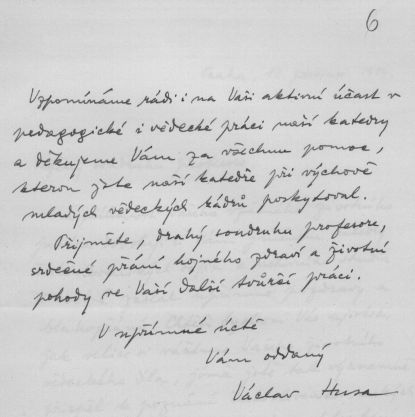 6
Vzpomínáme rádi i na Vaši aktivní účast v
pedagogické i vědecké práci naší katedry
a děkujeme Vám za všechnu pomoc,
kterou jste naší katedře při výchově
mladých vědeckých kádrů poskytoval.
Přijměte, drahý soudruhu profesore,
srdečné přání hojného zdraví a životní
pohody ve Vaší další tvůrčí práci.
V upřímné úctě
Vám oddaný
Václav Husa